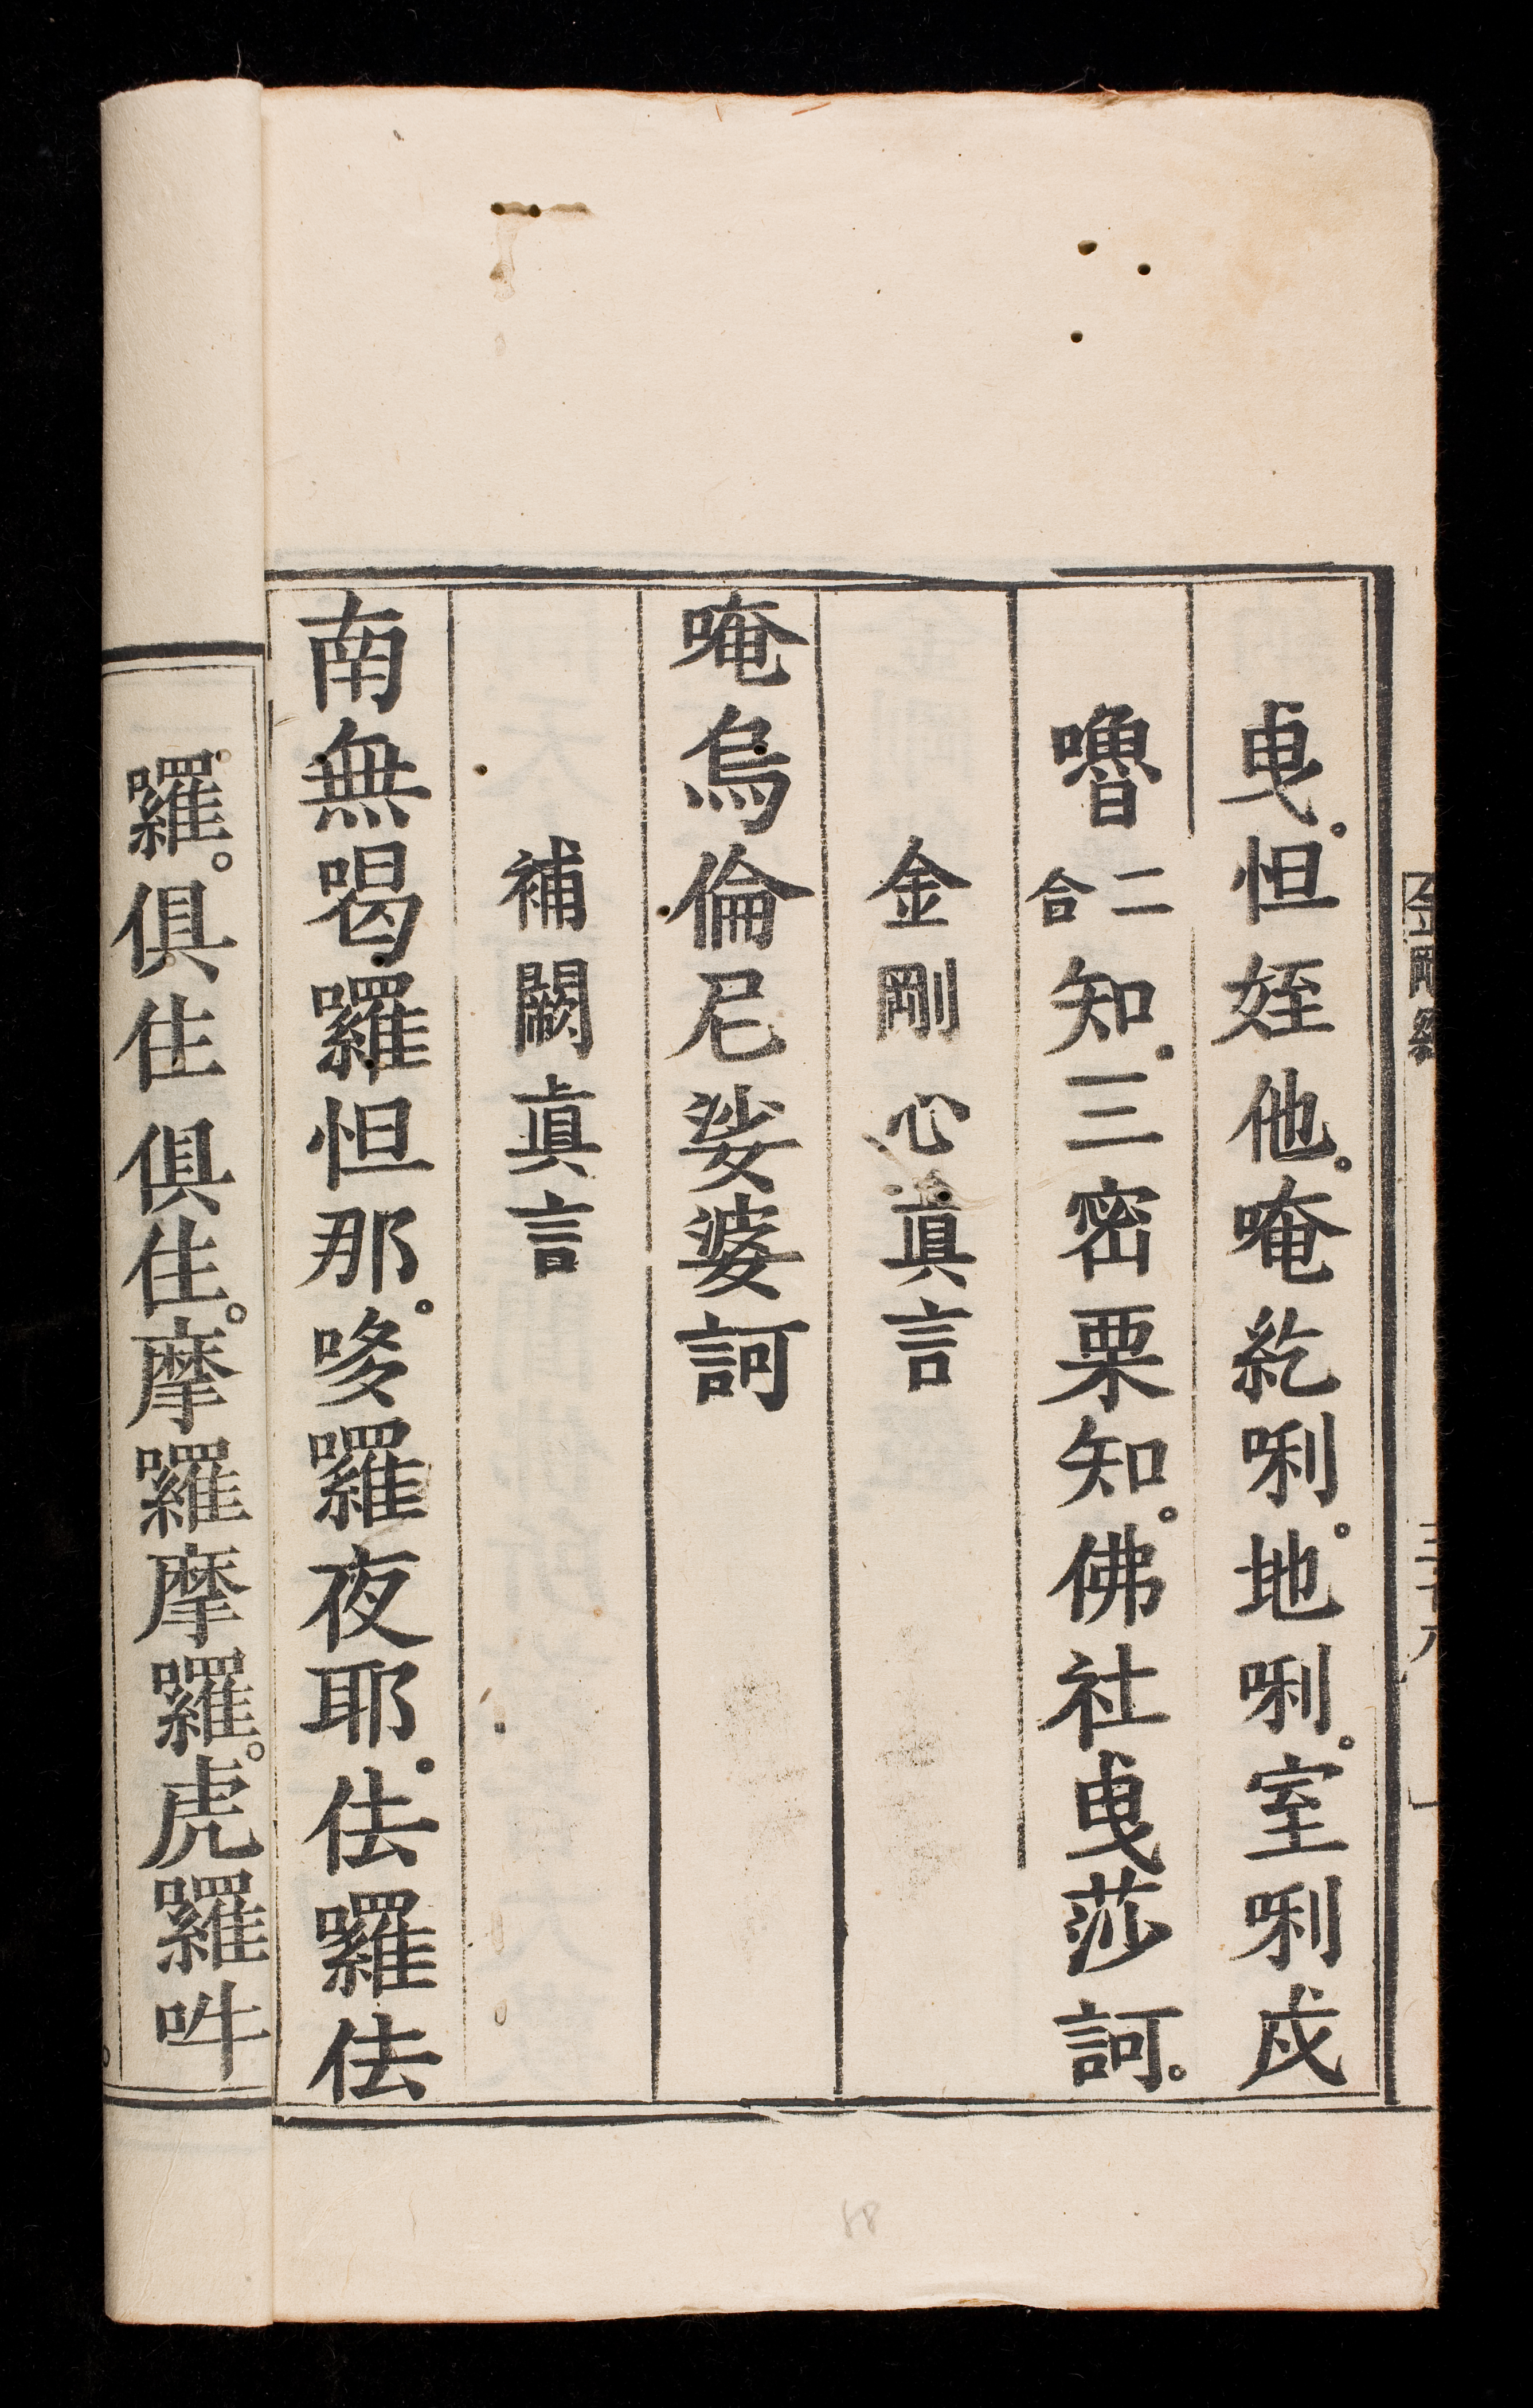 曳。怛姪他。唵紇唎。地唎。室唎戍
嚕二合知。三密栗知。佛社曳莎訶。
金剛心眞言
唵烏倫尼娑婆訶
補闕眞言
南無喝囉怛那。哆囉夜耶。佉囉佉
囉。俱住俱住。摩囉摩囉。虎囉吽